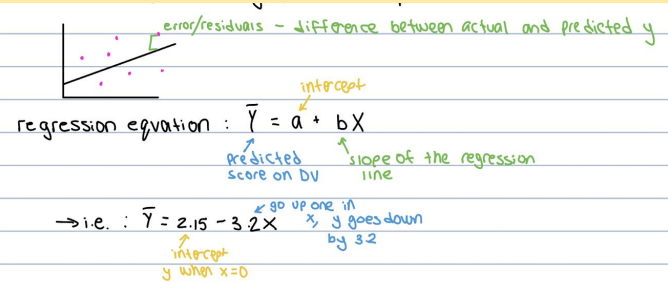 error/residuals - difference between actual and predicted y
intercept
regression equation : Ȳ = a + bX
predicted
score on DV
slope of the regression
line
→ i.e. : Ȳ = 2.15 - 3.2X
go up one in
x, y goes down
by 3.2
intercept
y when x=0